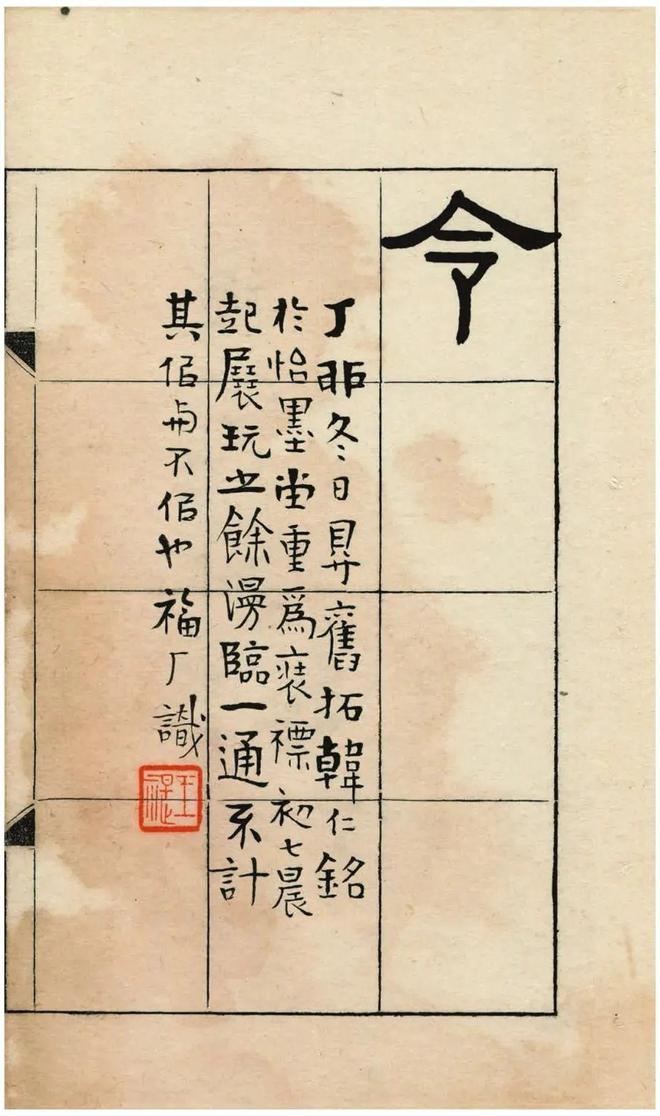 令
丁卯冬日㝵舊拓韓仁銘
於怡墨坣重爲裝褾初七晨
起展玩之餘漫臨一通不計
其佀与不佀也福厂識
王禔